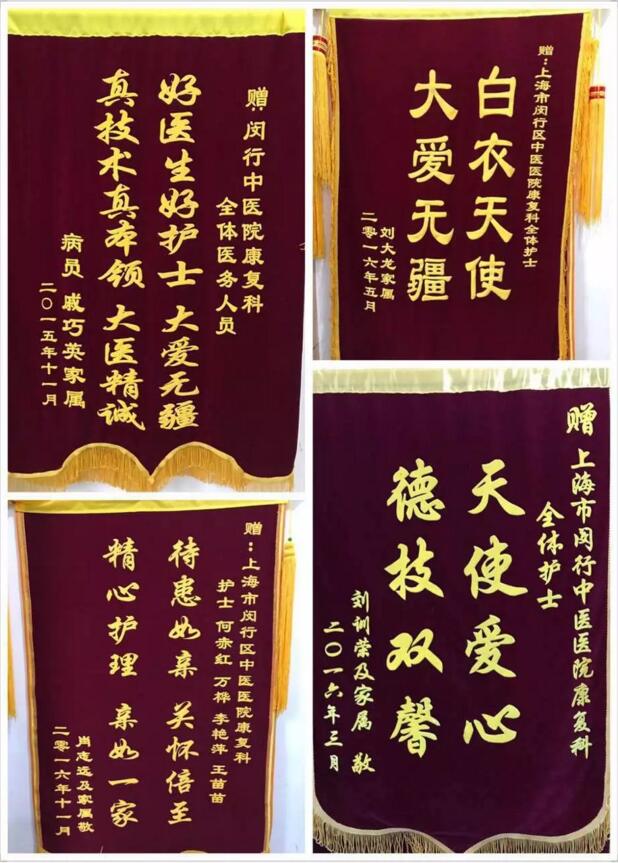 赠:闵行中医院康复科
全体医务人员
好医生好护士 大爱无疆
真技术真本领 大医精诚
病员 戚巧英家属
二〇一五年十一月
赠:上海市闵行区中医医院康复科全体护士
白衣天使
大爱无疆
刘大龙家属
二零一六年五月
赠:上海市闵行区中医医院康复科
护士 何赤红 万桦 李艳萍 王苗苗
待患如亲 关怀倍至
精心护理 亲如一家
肖志远及家属敬
二零一六年十一月
赠 上海市闵行中医医院康复科
全体护士
天使爱心
德技双馨
刘训荣及家属 敬
二〇一六年三月